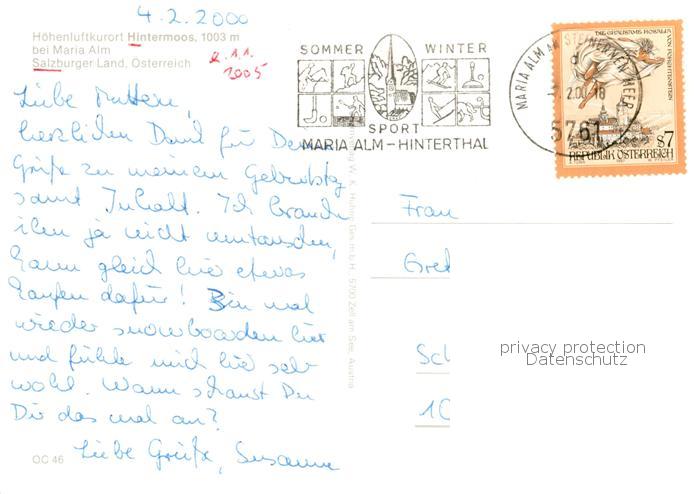 4.2.2000
Höhenluftkurort Hintermoos, 1003 m
bei Maria Alm
Salzburger Land, Österreich
2.11.
2005
Liebe Mutter,
herzlichen Dank für Deine
Grüße zu meinem Geburtstag
samt Inhalt. Ich brauche
ihn ja nicht umtauschen,
kann gleich hier etwas
kaufen dafür! Bin mal
wieder snowboarden hier
und fühle mich hier sehr
wohl. Wann schaust Du
Dir das mal an?
Liebe Grüße, Susanne
OC 46
SOMMER WINTER
SPORT
MARIA ALM – HINTERTHAL
MARIA ALM AM STEINERNEN MEER
2.00-16
5761
DIE GRAUSAME ROSALIA VON FORCHTENSTEIN
S7
REPUBLIK ÖSTERREICH
5700 Zell am See, Austria
Frau
Gret
Sch
10
privacy protection
Datenschutz